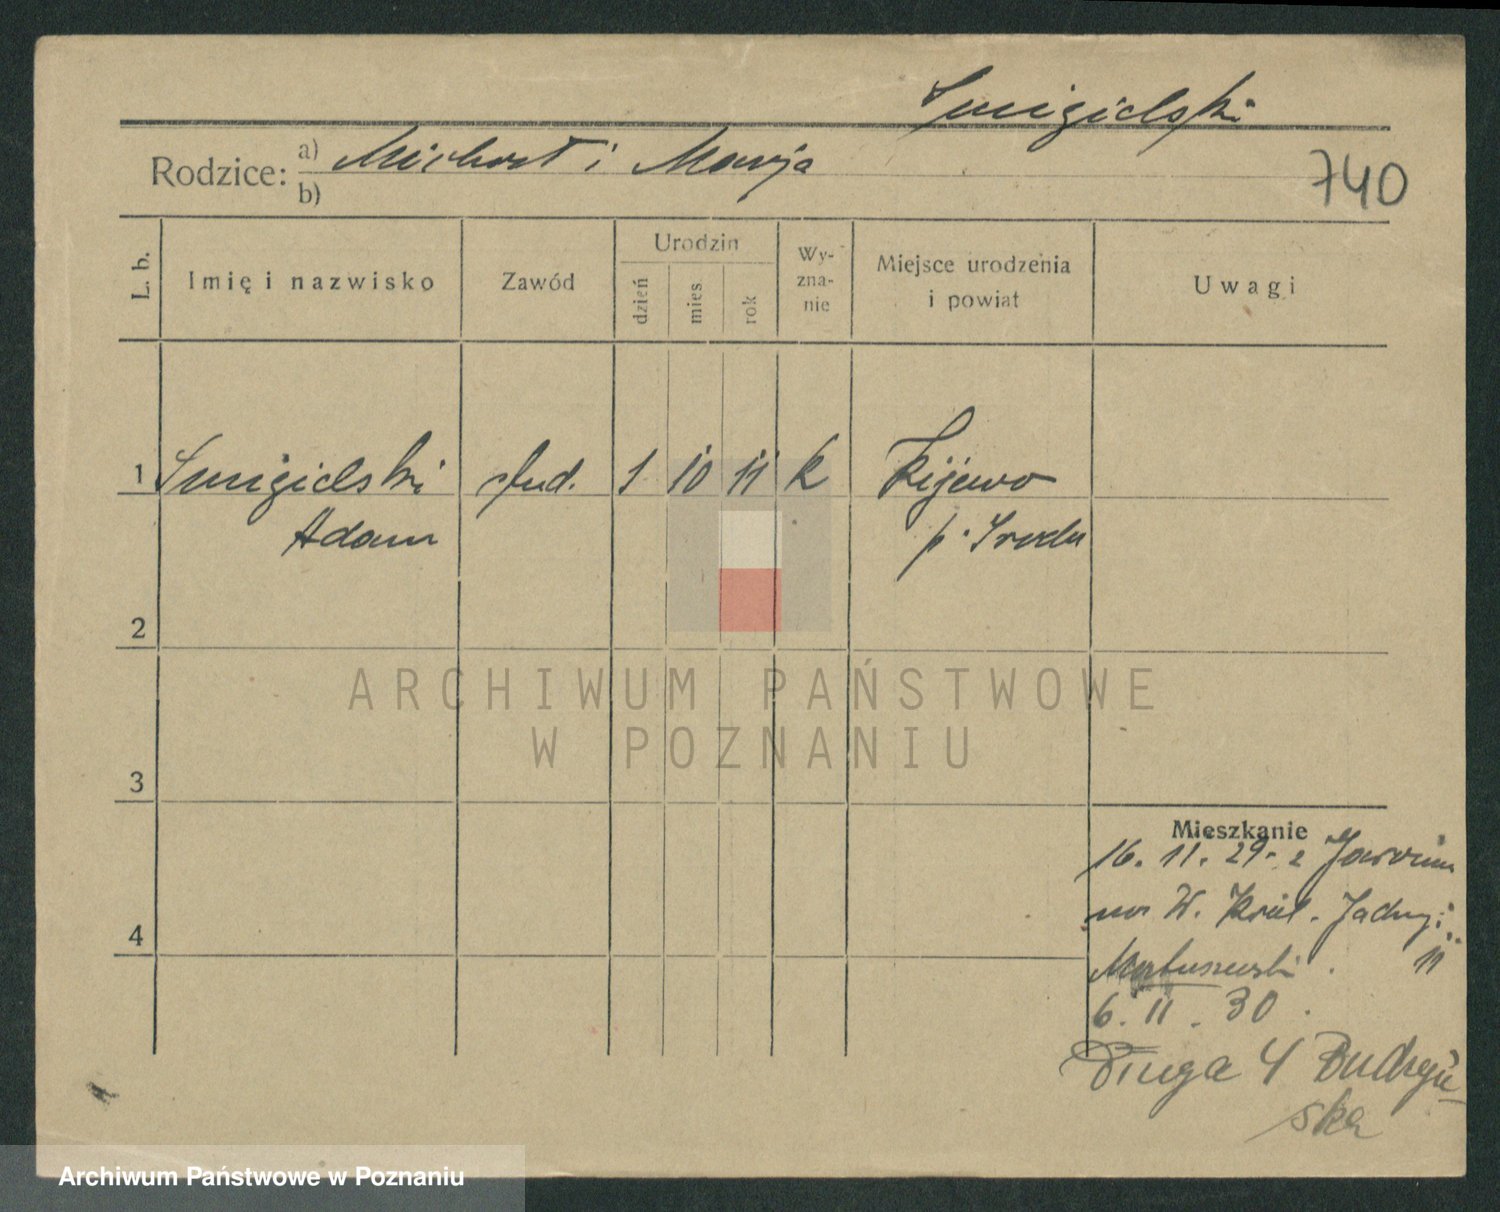 Smigielski
Rodzice: a) Michał i Marja
b)
740
L. b.
Imię i nazwisko
Zawód
Urodzin
dzień
mies.
rok
Wy-
zna-
nie
Miejsce urodzenia
i powiat
Uwagi
1 Smigielski stud. 1 10 11 k Kijewo
Adam p. Środa
2
ARCHIWUM PAŃSTWOWE
W POZNANIU
3
Mieszkanie
16. 11. 29. z
W. Król. Jadwigi
4
Matuszewski 11
6. II. 30.
Długa 4
ska
Archiwum Państwowe w Poznaniu